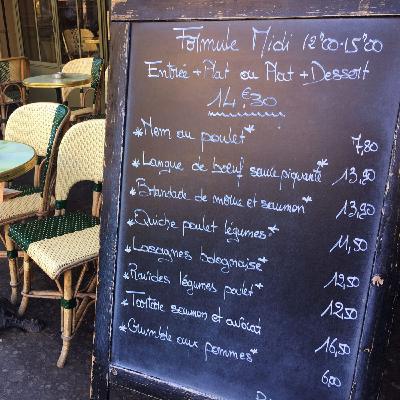 Formule Midi 12h00-15h00
Entrée + Plat ou Plat + Dessert
14,€30
*Nem au poulet* 7,80
*Langue de bœuf sauce piquante* 13,20
*Brandade de morue et saumon* 13,20
*Quiche poulet légumes* 11,50
*Lasagnes bolognaise* 12,50
*Ravioles légumes poulet* 12,50
*Tartare saumon et avocat 16,50
*Crumble aux pommes* 6,00